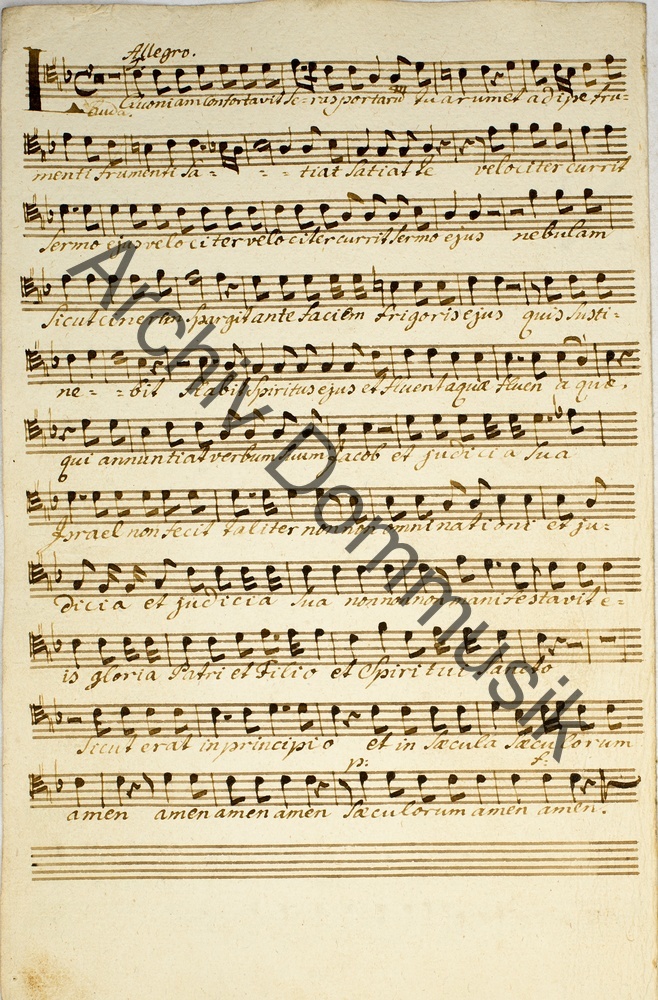 Allegro.
Lauda. Quoniam confortavit se-ras portarum tuarum et adipe fru-
menti frumenti sa- - - tiat satiat te velociter currit
Sermo ejus velociter velociter currit Sermo ejus nebulam
Sicut cinerem spargit ante faciem frigoris ejus quis susti-
ne- - bit flabit Spiritus ejus et fluent aquæ fluen aquæ.
qui annuntiat verbum suum Jacob et judicia sua
Israel non fecit taliter non non omni nationi et ju-
dicia et judicia sua non non non manifestavit e-
is gloria Patri et Filio et Spiritui Sancto
Sicut erat in principio et in Sæcula Sæculorum
p: f:
amen amen amen amen Sæculorum amen amen.
Archiv Dommusik